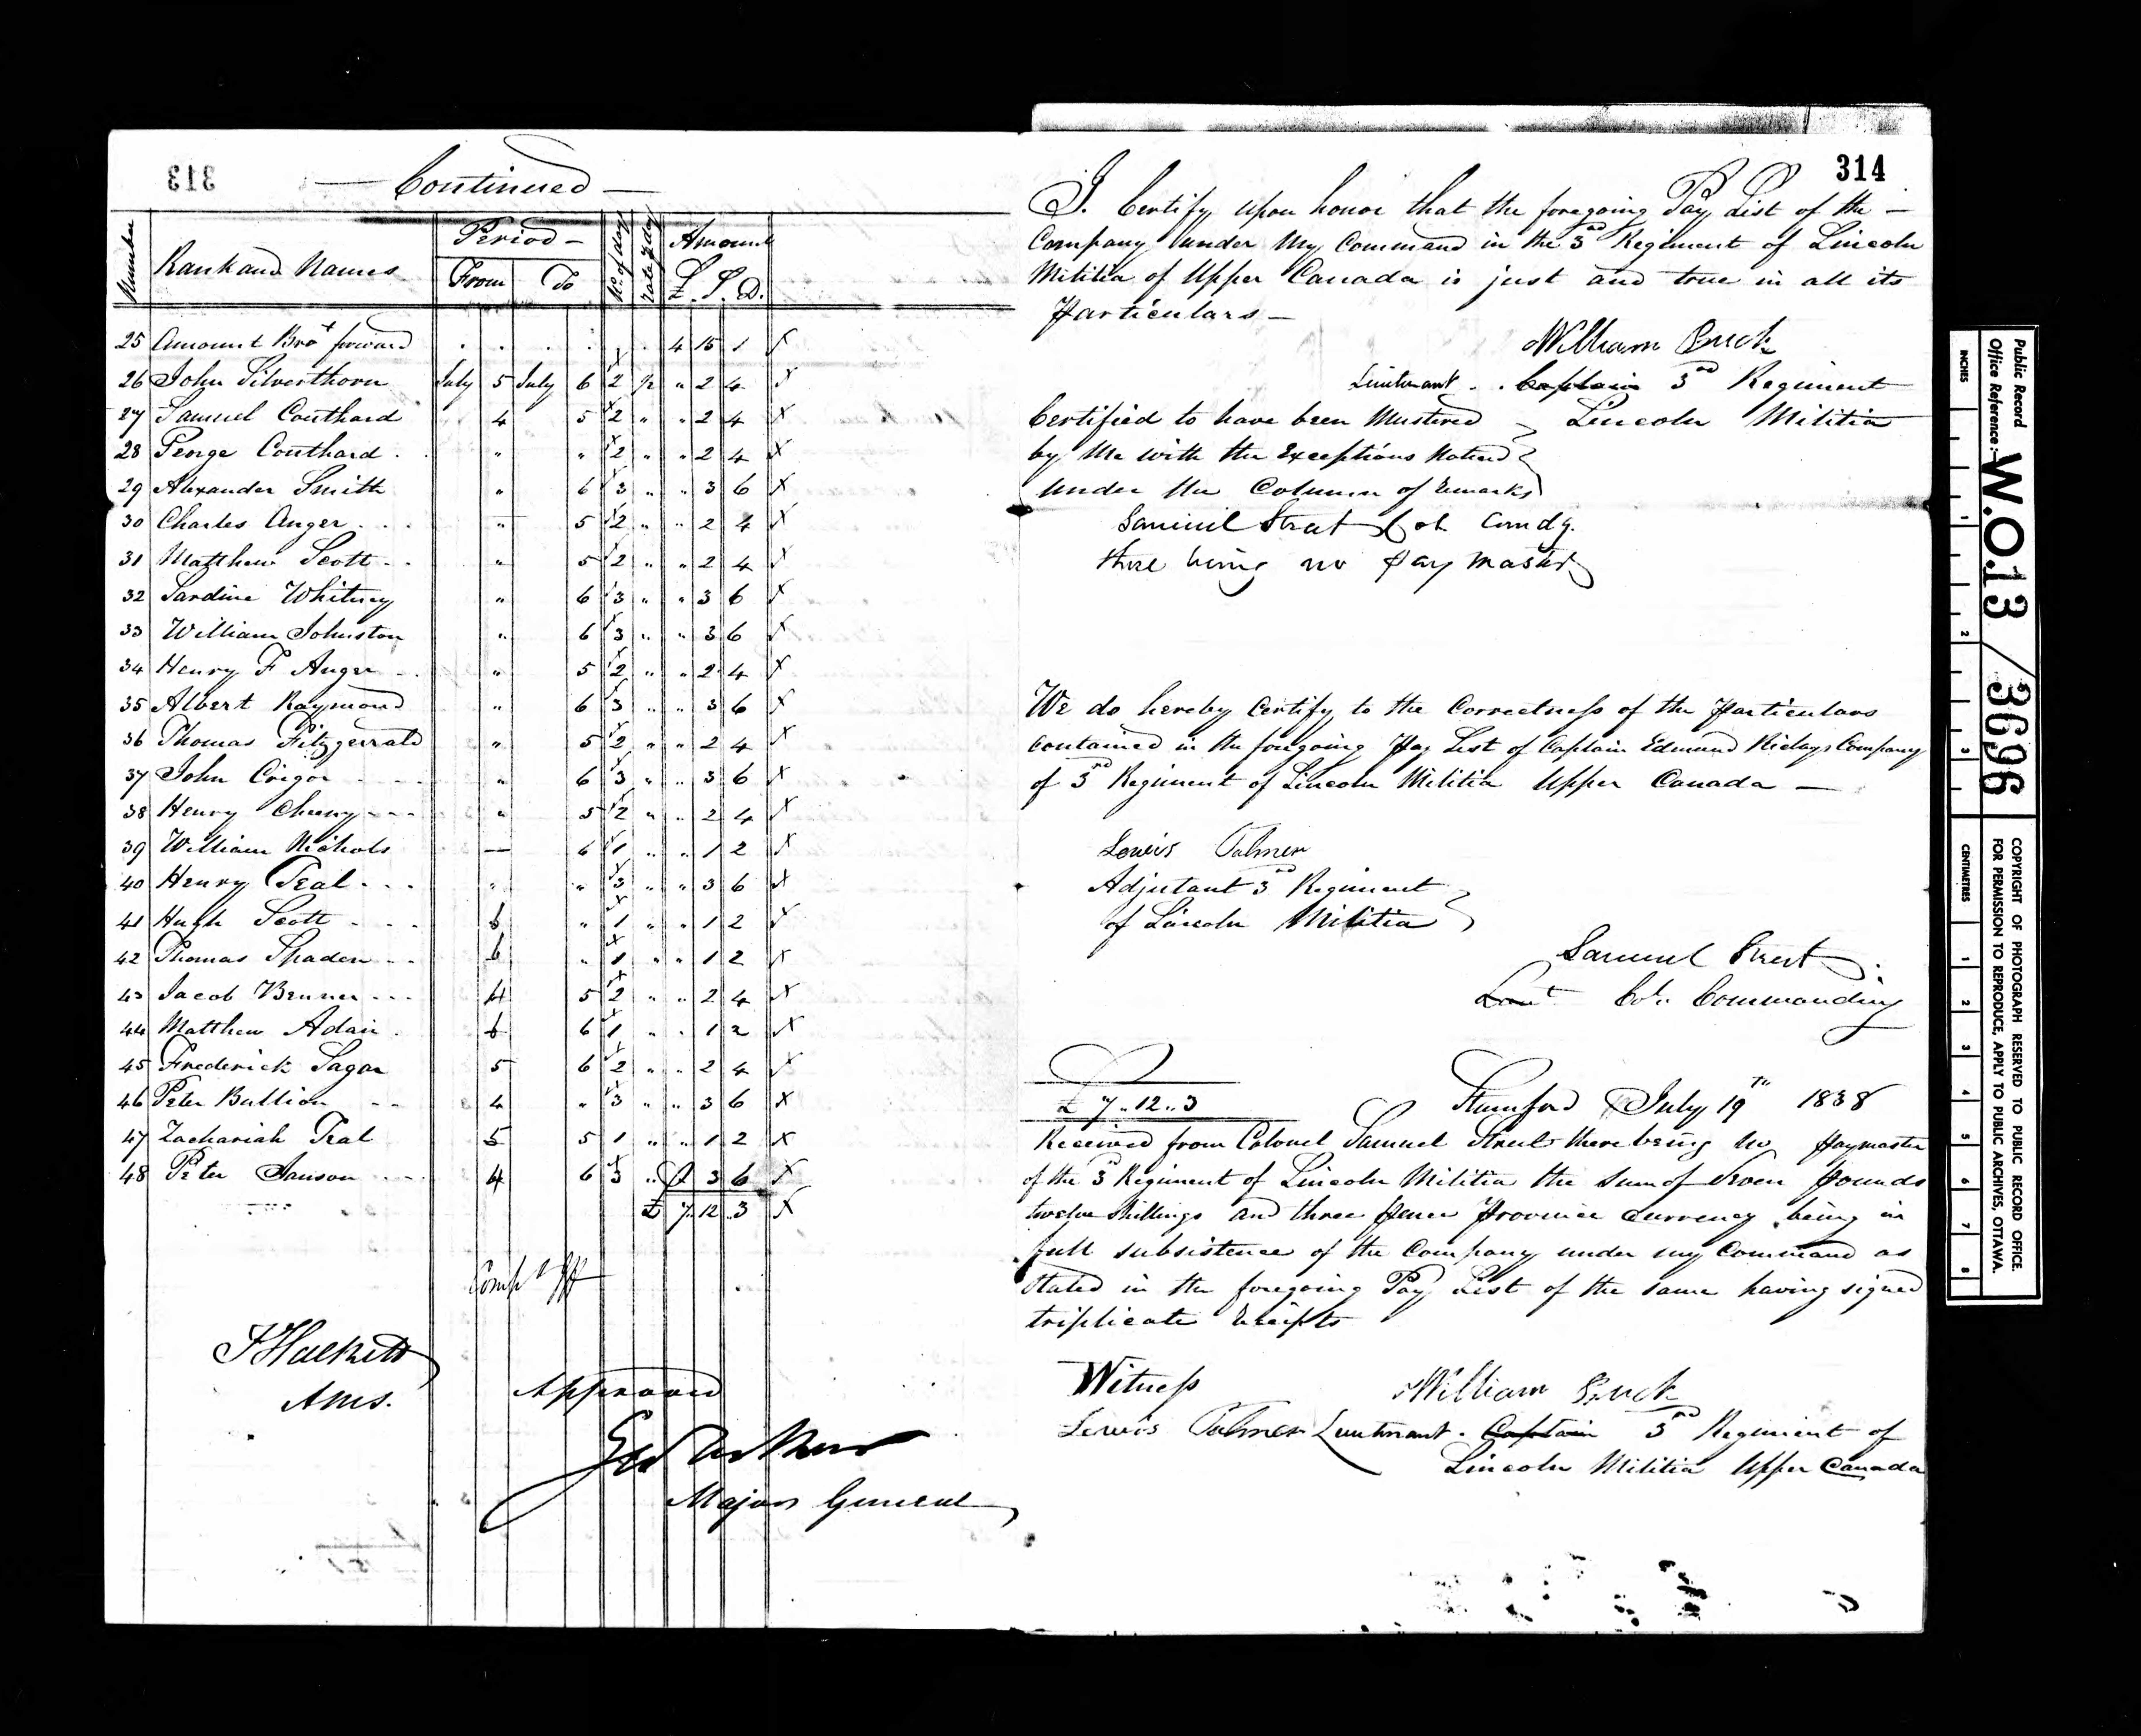 313
Continued
Number Rank and Names Period No. of days Rate pr day Amount
From To £ S. D.
25 Amount Bro't forward 4 15 1
26 John Silverthorn July 5 July 6 2 1/2 " 2 4
27 Samuel Couthard 4 5 2 " " 2 4
28 George Couthard " " 2 " " 2 4
29 Alexander Smith " 6 3 " " 3 6
30 Charles Anger " 5 2 " " 2 4
31 Matthew Scott " 5 2 " " 2 4
32 Sardine Whitney " 6 3 " " 3 6
33 William Johnston " 6 3 " " 3 6
34 Henry F Anger " 5 2 " " 2 4
35 Albert Raymond " 6 3 " " 3 6
36 Thomas Fitzgerrald " 5 2 " " 2 4
37 John Crigor " 6 3 " " 3 6
38 Henry " 5 2 " " 2 4
39 William Nichols — 6 1 " " 1 2
40 Henry Teal " " 3 " " 3 6
41 Hugh Scott 6 " 1 " " 1 2
42 Thomas Spaden 6 " 1 " " 1 2
43 Jacob Brunner 4 5 2 " " 2 4
44 Matthew Adair 6 6 1 " " 1 2
45 Frederick Sagar 5 6 2 " " 2 4
46 Peter Bullion 4 " 3 " " 3 6
47 Zachariah Teal 5 5 1 " " 1 2
48 Peter Janson 4 6 3 " " 3 6
£ 7 12 3
Comp
Hackett
Approved
Major General
314
I. Certify upon honor that the foregoing Pay List of the —
Company under My Command in the 3rd Regiment of Lincoln
Militia of Upper Canada is just and true in all its
Particulars —
William Buck
Lieutenant . Captain 3rd Regiment
Certified to have been Mustered Lincoln Militia
by Me with the Exceptions Noticed
under the Column of Remarks
Samuel Street Col. Comdg.
there being no paymaster
We do hereby Certify to the Correctness of the Particulars
contained in the foregoing Pay List of Captain Edmund Rielays Company
of 3rd Regiment of Lincoln Militia Upper Canada —
Lewis Palmer
Adjutant 3rd Regiment
of Lincoln Militia
Samuel Street
Col. Commanding
£ 7..12..3 Stamford July 19th 1838
Received from Colonel Samuel Street there being no Paymaster
of the 3rd Regiment of Lincoln Militia the Sum of Seven Pounds
twelve Shillings and three Pence Province Currency being in
full subsistence of the Company under my Command as
Stated in the foregoing Pay List of the same having signed
triplicate Receipts
Witness William Buck
Lewis Palmer Lieutenant . Captain 3rd Regiment of
Lincoln Militia Upper Canada
Public Record
Office Reference:-
W.O.13/3696
COPYRIGHT OF PHOTOGRAPH RESERVED TO PUBLIC RECORD OFFICE.
FOR PERMISSION TO REPRODUCE, APPLY TO PUBLIC ARCHIVES, OTTAWA.
INCHES 1 2 3
CENTIMETRES 1 2 3 4 5 6 7 8